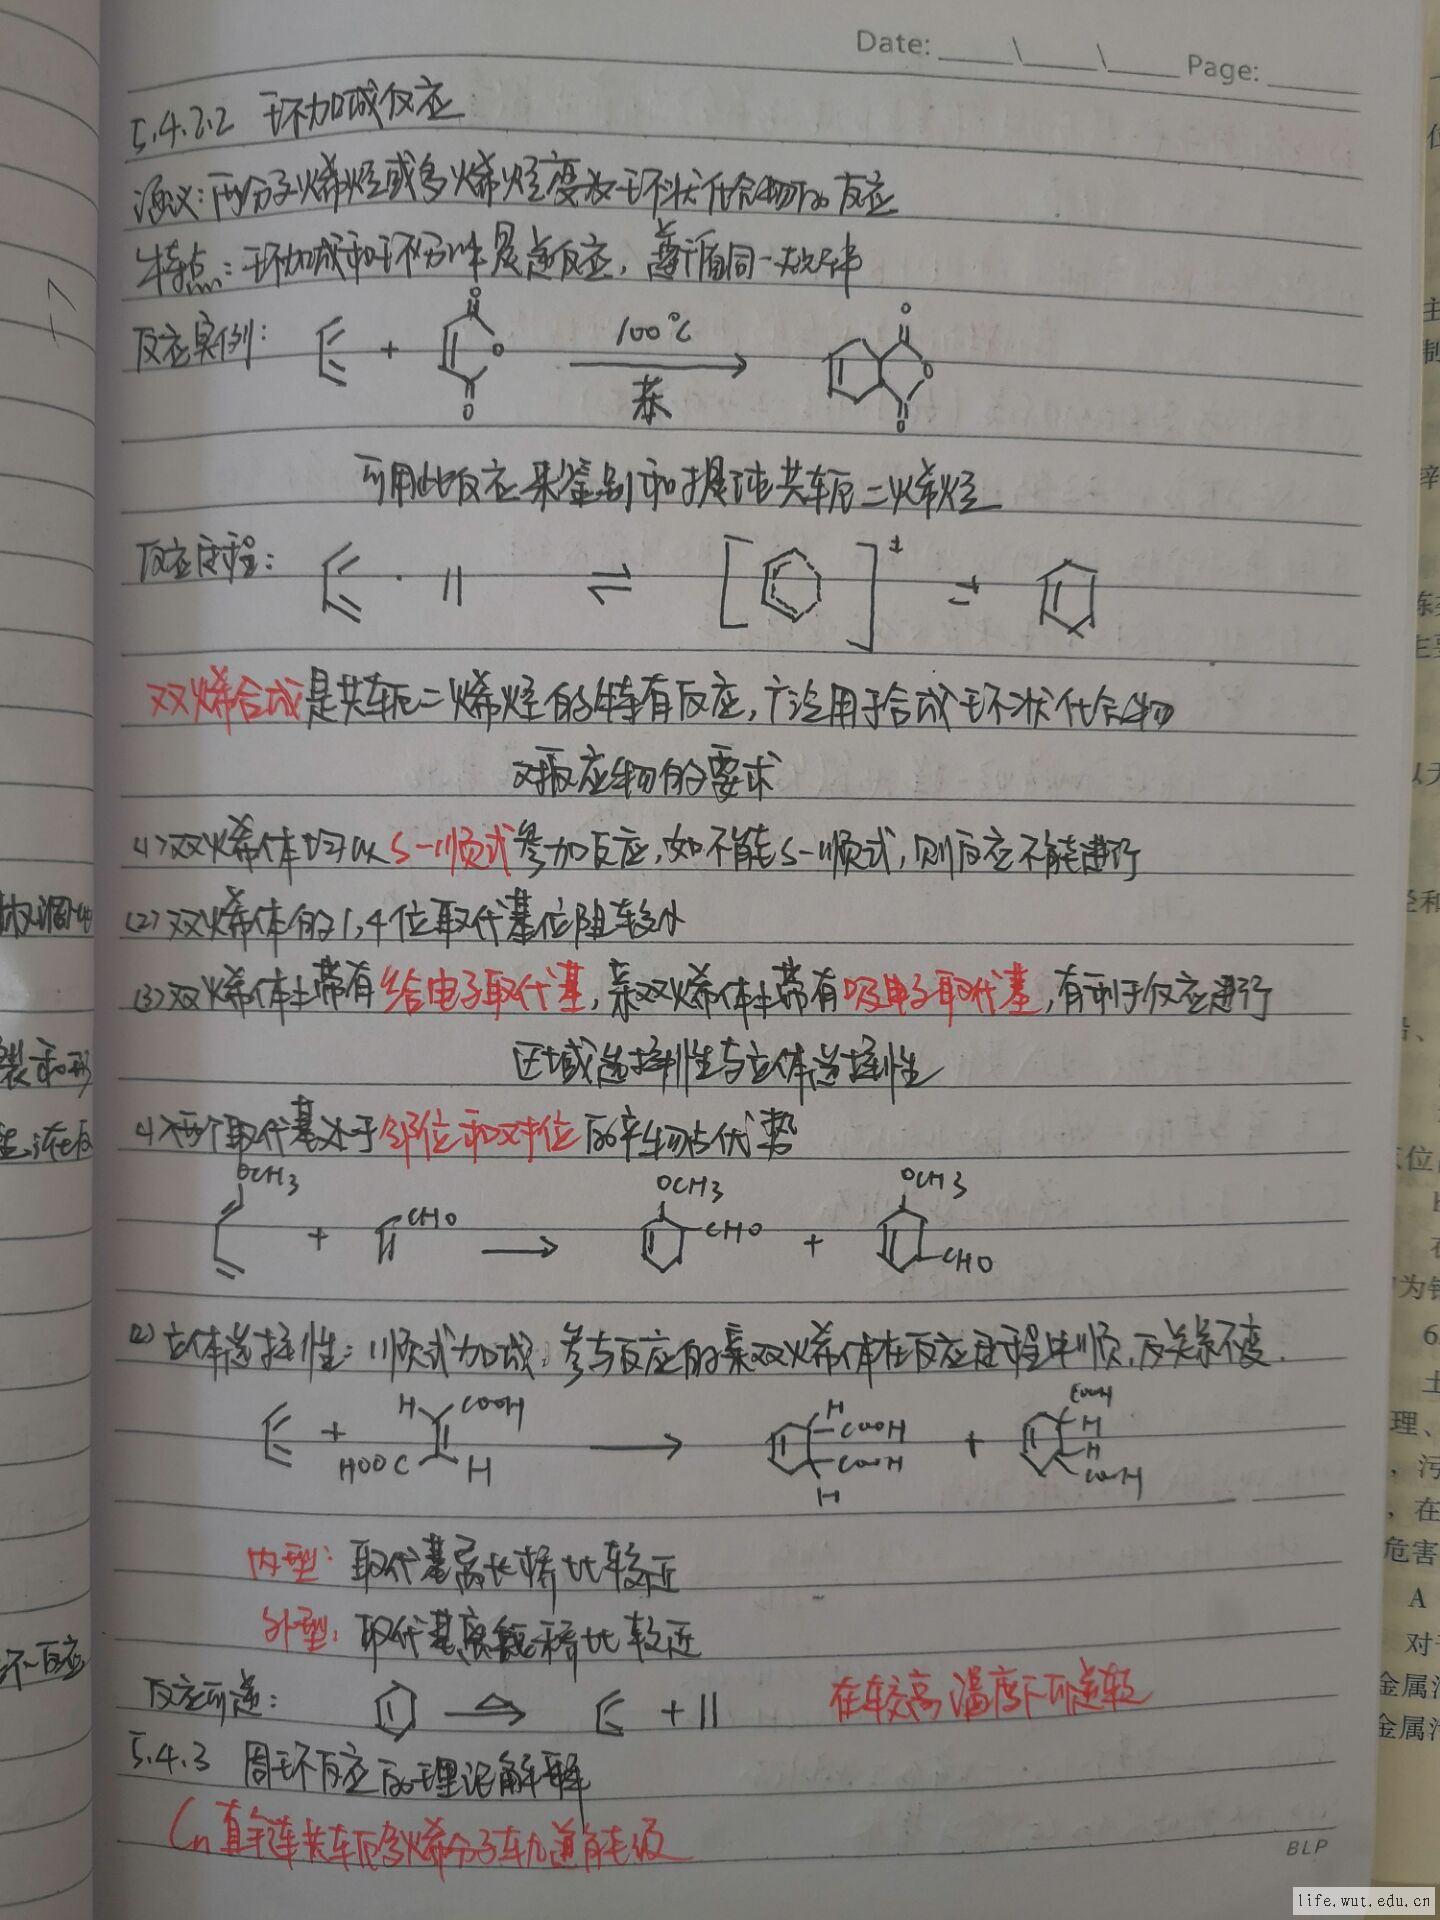 Date: ____\____\____ Page: ____
5.4.2.2 环加成反应
涵义:两分子烯烃或多烯烃变为环状化合物的反应
特点:环加成和环分解是逆反应,遵循同一规律
反应实例: + O O O 100℃ 苯 O O O
可用此反应来鉴别和提纯共轭二烯烃
反应历程:
双烯合成是共轭二烯烃的特有反应,广泛用于合成环状化合物
对反应物的要求
(1)双烯体均以S-顺式参加反应,如不能S-顺式,则反应不能进行
(2)双烯体的1,4位取代基位阻较小
(3)双烯体上带有给电子取代基,亲双烯体上带有吸电子取代基,有利于反应进行
区域选择性与立体选择性
(1)两个取代基处于邻位和对位的产物占优势
OCH3 + CHO OCH3 CHO + OCH3 CHO
(2)立体选择性:顺式加成:参与反应的亲双烯体在反应历程中顺,反关系不变.
+ H COOH HOOC H H COOH COOH H + COOH H H COOH
内型:取代基离长桥比较近
外型:取代基离短桥比较近
反应可逆: + 在较高温度下可逆转
5.4.3 周环反应的理论解释
Cn直链共轭多烯分子轨道能级
BLP
life.wut.edu.cn